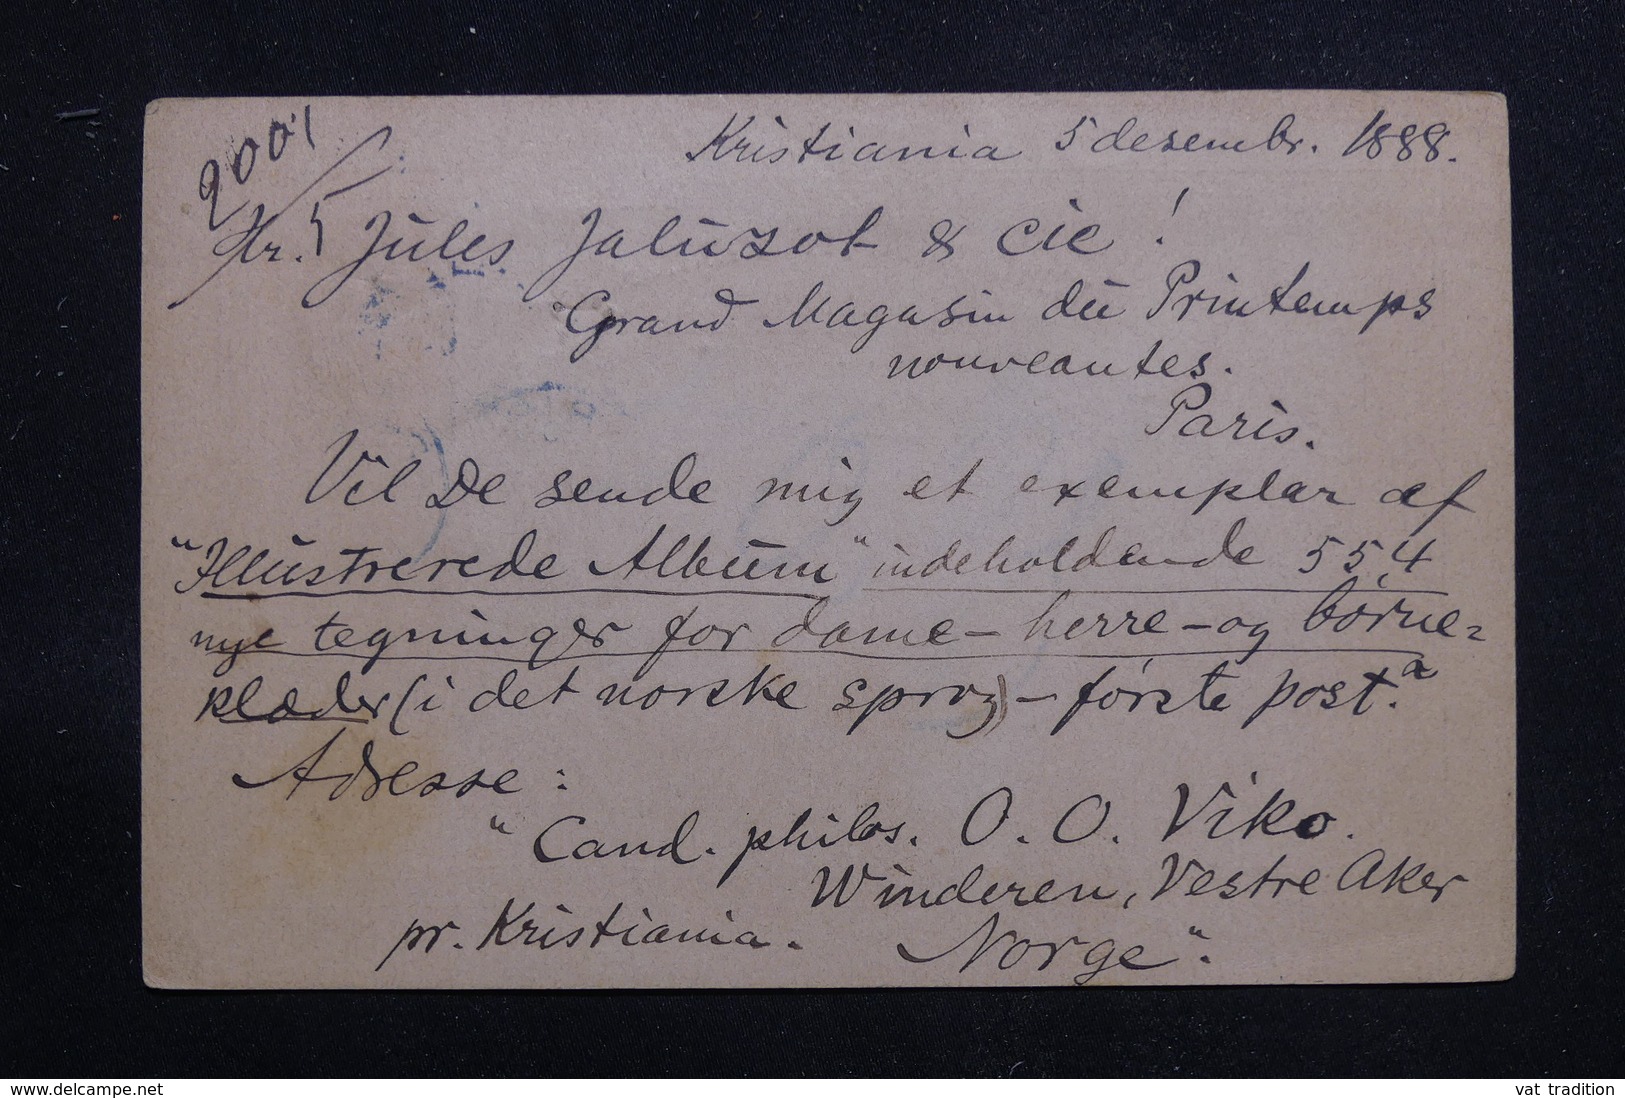 2001
Kristiania 5 desembr. 1888.
Hr. Jules Jaluzot & Cie!
Grand Magasin du Printemps
nouveautes.
Paris.
Vil De sende mig et exemplar af
"Illustrerede Album" indeholdende 554
nye tegninger for dame- herre- og børne=
klæder (i det norske sprog) - første post.
Adresse:
"Cand. philos. O. O. Viko.
Winderen, Vestre Aker
pr. Kristiania. Norge".
www.delcampe.net
vat tradition